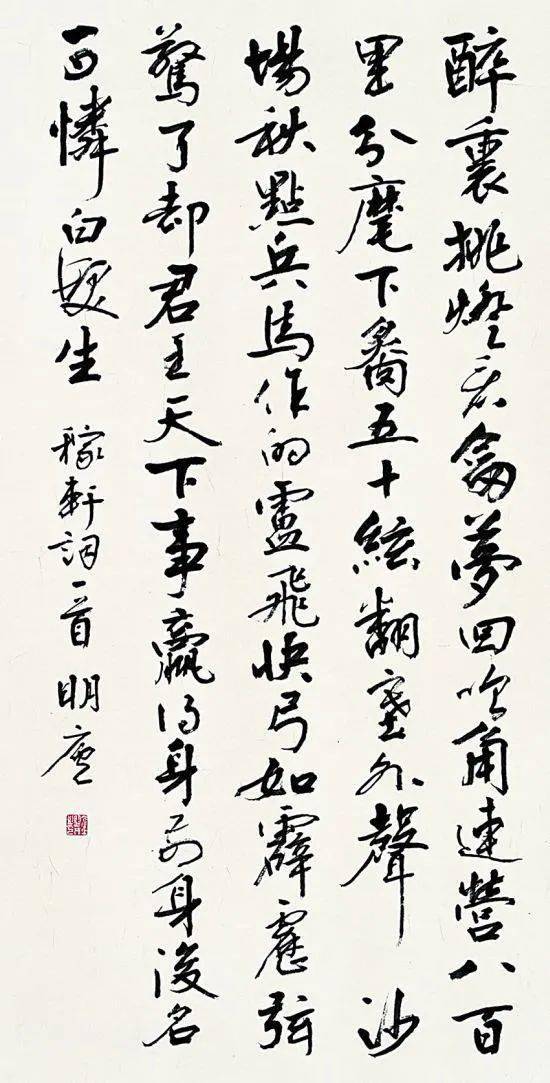 醉裏挑燈看劍夢回吹角連營八百
里分麾下炙五十絃翻塞外聲 沙
場秋點兵馬作的盧飛快弓如霹靂弦
驚了却君王天下事贏得身前身後名
可憐白髮生 稼軒詞一首 明